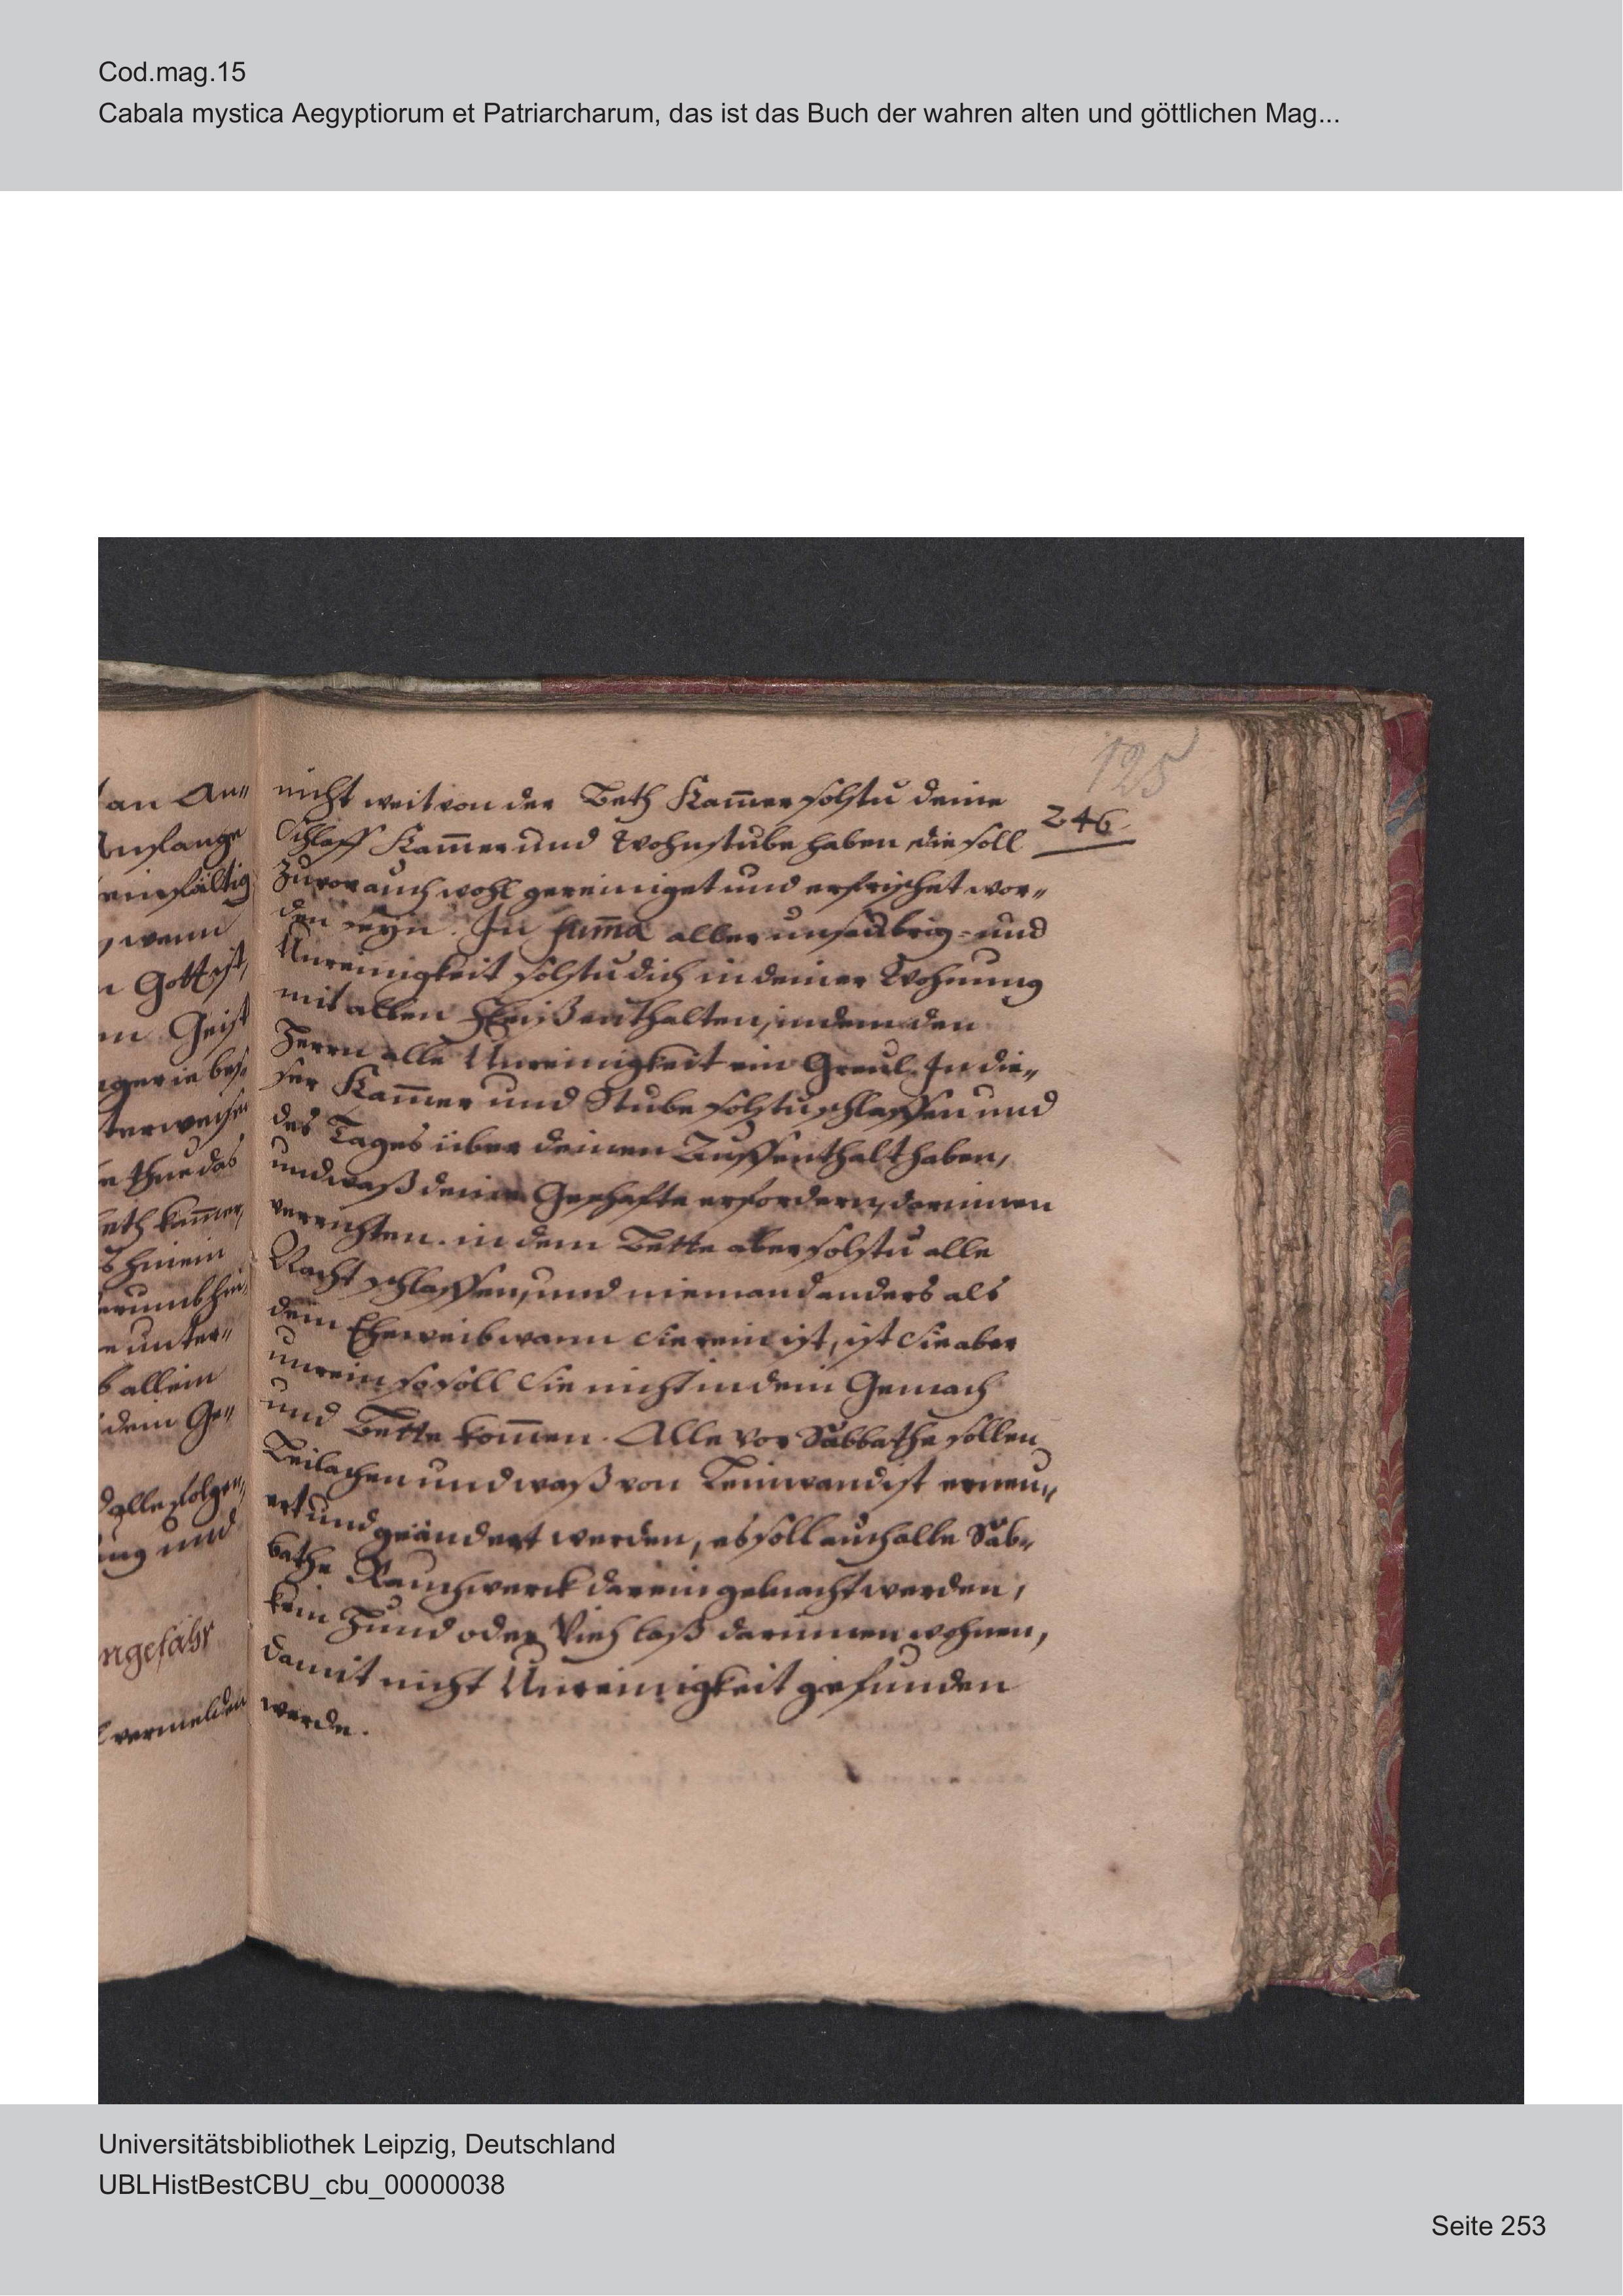 Cod.mag.15
Cabala mystica Aegyptiorum et Patriarcharum, das ist das Buch der wahren alten und göttlichen Mag...
125
246
an An„
einfältig
wenn
Gott ist,
Geist
thue das
hinein
unter„
allein
dein Ge„
und
ngefähr
vermelden
nicht weit von der Beth Kam̄er solstu deine
Schlaff Kam̄er und Wohnstube haben, die soll
zuvor auch wohl gereiniget und erfrischet wor„
den seyn. In sum̄a aller unsaubrig- und
Unreinigkeit solstu dich in deiner Wohnung
mit allen Fleiß enthalten, indem den
Herrn alle Unreinigkeit ein Greul. In die„
ser Kam̄er und Stube solstu schlaffen und
des Tages über deinen Auffenthalt haben,
und waß deine Geschafte erfordern, darinnen
verrichten. in dem Bette aber solstu alle
Nacht schlaffen, und niemand anders als
dein Eheweib wann Sie rein ist, ist Sie aber
unrein so soll Sie nicht in dein Gemach
und Bette kom̄en. Alle vor Sabbathe sollen
Leilachen und waß von Leinwand ist erneu„
ert und geändert werden, es soll auch alle Sab„
bathe Rauchwerck darein gebracht werden,
kein Hund oder Vieh laß darinnen wohnen,
damit nicht Unreinigkeit gefunden
werde.
Universitätsbibliothek Leipzig, Deutschland
UBLHistBestCBU_cbu_00000038
Seite 253